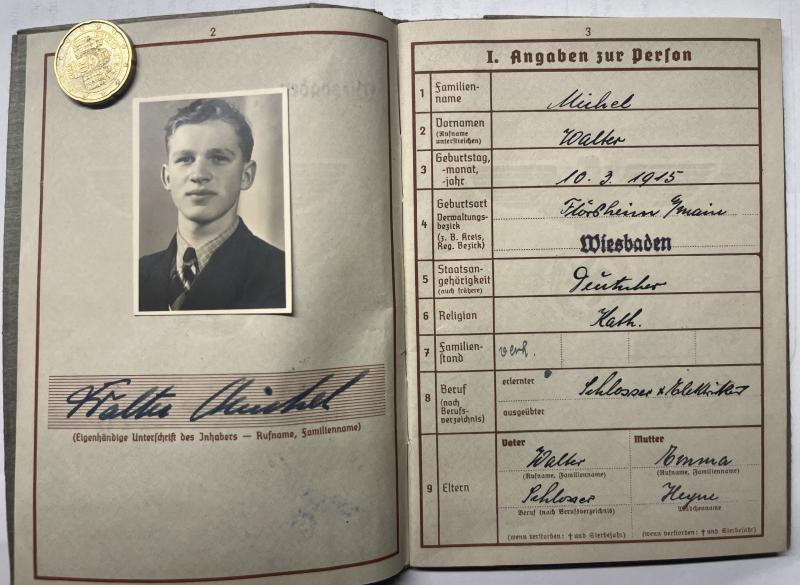 2
Walter Michel
(Eigenhändige Unterschrift des Inhabers — Rufname, Familienname)
3
I. Angaben zur Person
1 Familien-
name
Michel
2 Vornamen
(Rufname
unterstreichen)
Walter
3 Geburtstag,
-monat,
-jahr
10. 3. 1915
4 Geburtsort
Verwaltungs-
bezirk
(z. B. Kreis,
Reg. Bezirk)
Flörsheim a/Main
Wiesbaden
5 Staatsan-
gehörigkeit
(auch frühere)
Deutscher
6 Religion
Kath.
7 Familien-
stand
verh.
8 Beruf
(nach
Berufs-
verzeichnis)
erlernter
Schlosser & Elektriker
ausgeübter
9 Eltern
Vater
Walter
(Rufname, Familienname)
Schlosser
Beruf (nach Berufsverzeichnis)
(wenn verstorben: † und Sterbejahr)
Mutter
Emma
(Rufname, Familienname)
Heyne
Mädchenname
(wenn verstorben: † und Sterbejahr)